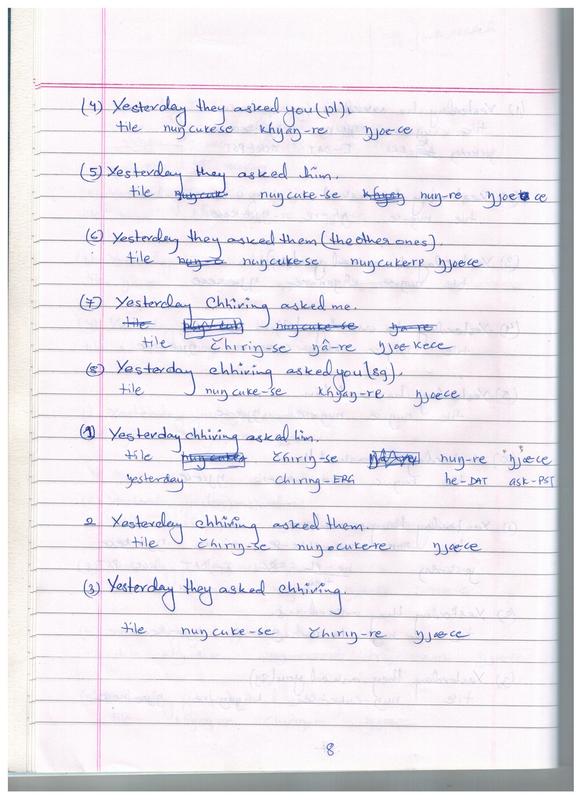 (4) Yesterday they asked you (pl).
tile nuŋcukese khyaŋ-re ŋjoece
(5) Yesterday they asked him.
tile nuŋcuke-se nuŋ-re ŋjoece
(6) Yesterday they asked them (the other ones).
tile nuŋcuke-se nuŋcuke-re ŋjoece
(7) Yesterday Chhiring asked me.
tile nuŋcuke-se ŋa-re
tile čhiriŋ-se ŋâ-re ŋjoekece
(8) Yesterday chhiring asked you (sg).
tile nuŋcuke-se khyaŋ-re ŋjoece
(1) Yesterday chhiring asked him.
tile čhiriŋ-se nuŋ-re ŋjœce
yesterday chiring-ERG he-DAT ask-PST
2. Yesterday chhiring asked them.
tile čhiriŋ-se nuŋocukere ŋjœce
(3) Yesterday they asked chhiring.
tile nuŋcuke-se čhiriŋ-re ŋjœce
8